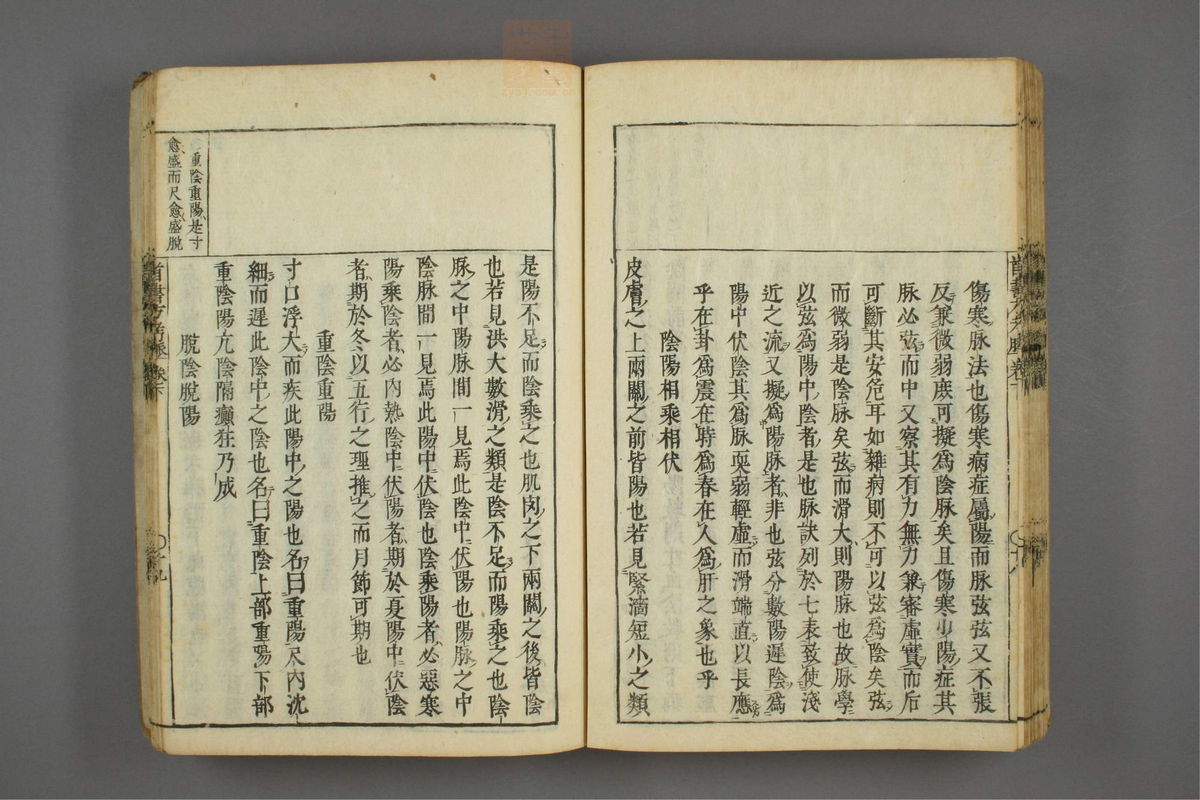 傷寒脉法也傷寒病症屬陽而脉弦弦又不張
反兼微弱庶可擬爲陰脉矣且傷寒少陽症其
脉必弦而中又察其有力無力兼審虛實而后
可斷其安危耳如雜病則不可以弦爲陰矣弦
而微弱是陰脉矣弦而滑大則陽脉也故脉學
以弦爲陽中陰者是也脉訣列於七表致使淺
近之流又擬爲陽脉者非也弦分數陽遲陰爲
陽中伏陰其爲脉耎弱輕虛而滑端直以長應
乎在卦爲震在時爲春在人爲肝之象也乎
陰陽相乘相伏
皮膚之上兩關之前皆陽也若見緊濇短小之類
是陽不足而陰乘之也肌肉之下兩關之後皆陰
也若見洪大數滑之類是陰不足而陽乘之也陰
脉之中陽脉間一見焉此陰中伏陽也陽脉之中
陰脉間一見焉此陽中伏陰也陰乘陽者必惡寒
陽乘陰者必内熱陰中伏陽者期於夏陽中伏陰
者期於冬以五行之理推之而月節可期也
重陰重陽
寸口浮大而疾此陽中之陽也名曰重陽尺内沈
細而遲此陰中之陰也名曰重陰上部重陽下部
重陰陽亢陰隔癲狂乃成
脫陰脫陽
重陰重陽是寸
愈盛而尺愈盛脫